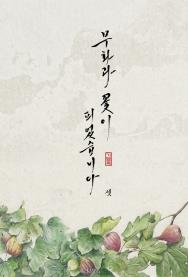 무화과 꽃이
피었습니다
셋